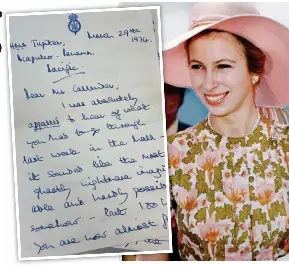 March 29th
1974.
Acapulco - Panama.
Pacific.
Dear Mr. Callender,
I was absolutely
appalled to hear of what
you had to go through
last week in the Mall -
it sounded like the most
ghastly nightmare imagin
able and hardly possible
somehow - but I do
you are now almost